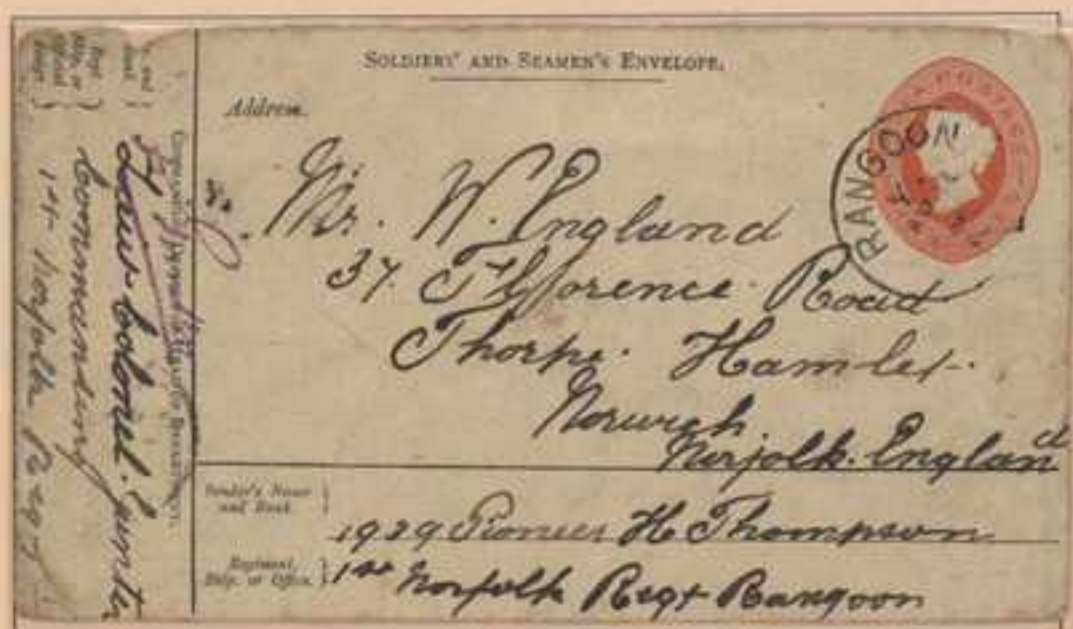 SOLDIERS' AND SEAMEN'S ENVELOPE.
Address.
Mr. W. England
37. Florence Road
Thorpe. Hamlet.
Norwich
Norfolk. England
Sender's Name
and Rank.
1929 Pioneer H Thompson
Regiment,
Ship. or Office.
1st Norfolk Regt Rangoon
RANGOON
POSTAGE
Commanding
Colonel
commanding
1st Norfolk Regt